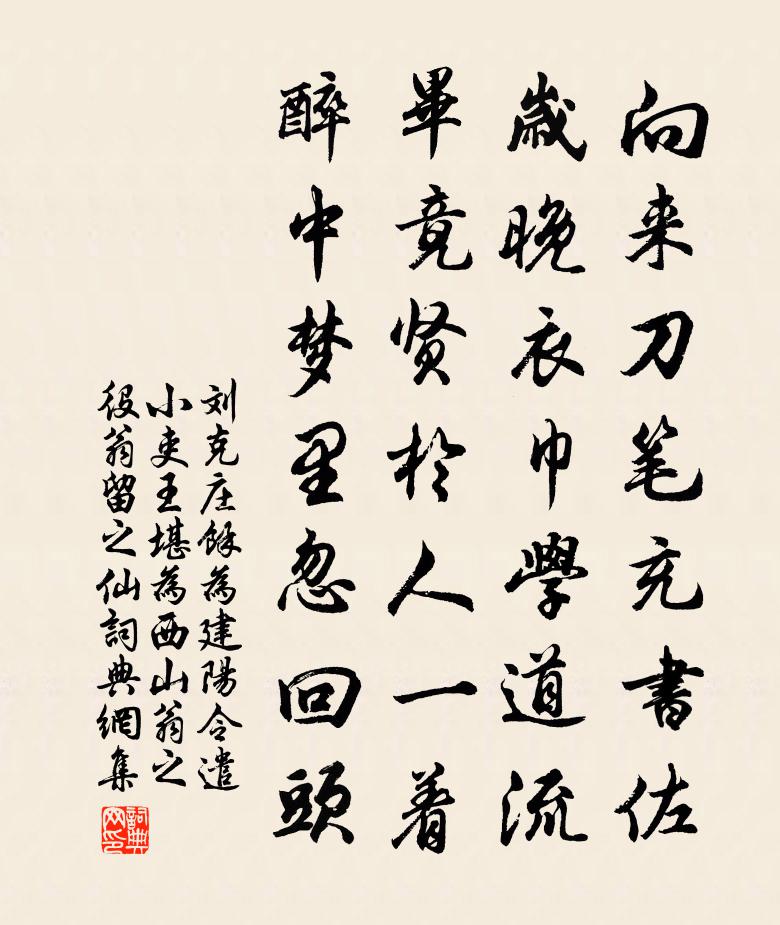 向来刀笔充書佐
歳晚衣巾學道流
畢竟贤於人一着
醉中梦里忽回頭
刘克庄馀為建陽令遣
小吏王堪為西山翁之
役翁留之仙詞典網集
詞典
网印